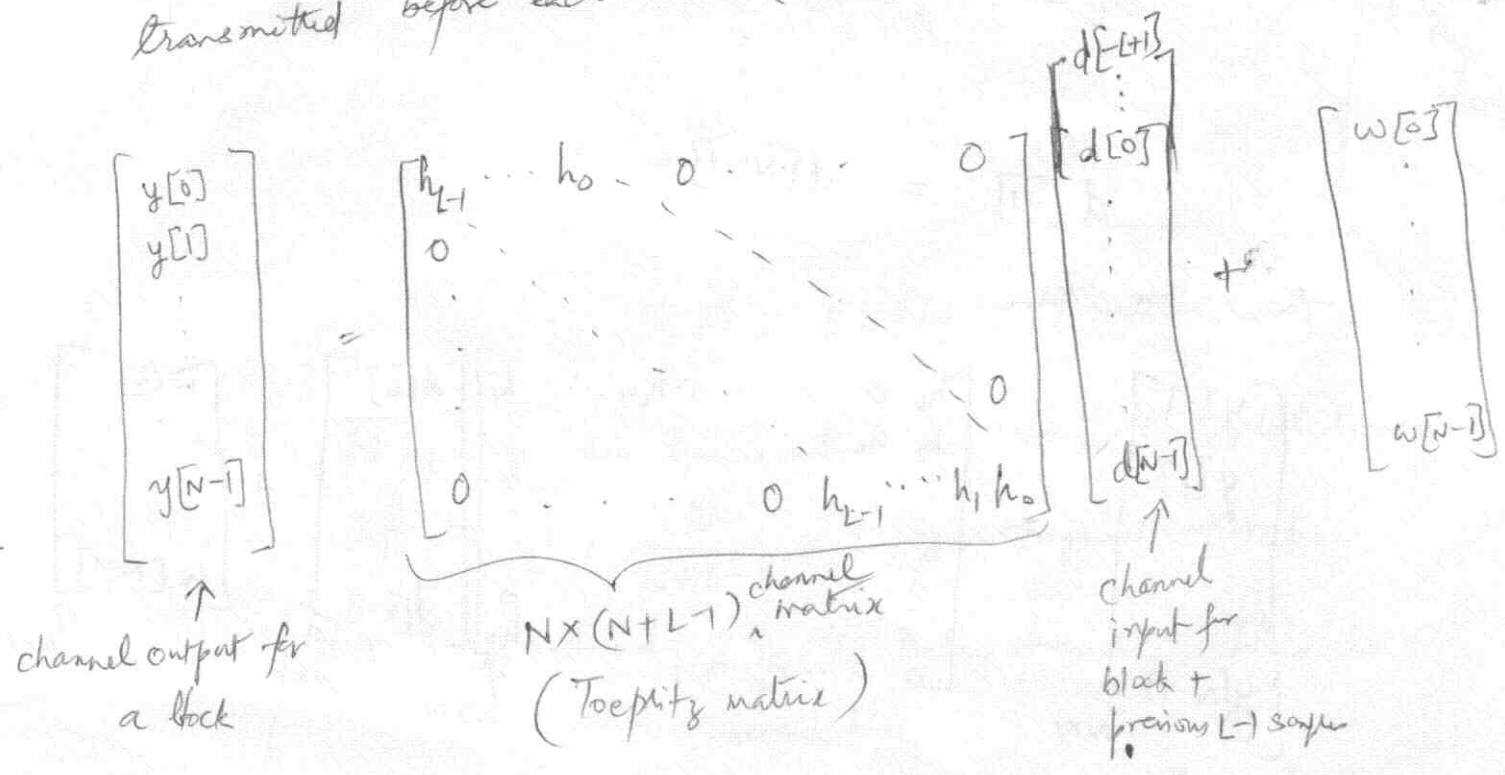 transmitted before
d[-L+1]
⋮
[ y[0] ] [ h_{L-1} ... h_0 - 0 . . . 0 ] [ d[0] ] [ w[0] ]
y[1] 0
= +
0
y[N-1] 0 . . . 0 h_{L-1} .... h_1 h_0 d[N-1] w[N-1]
↑ ↑
channel output for
a block
N×(N+L-1) channel
matrix
(Toeplitz matrix)
channel
input for
block +
previous L-1 samples